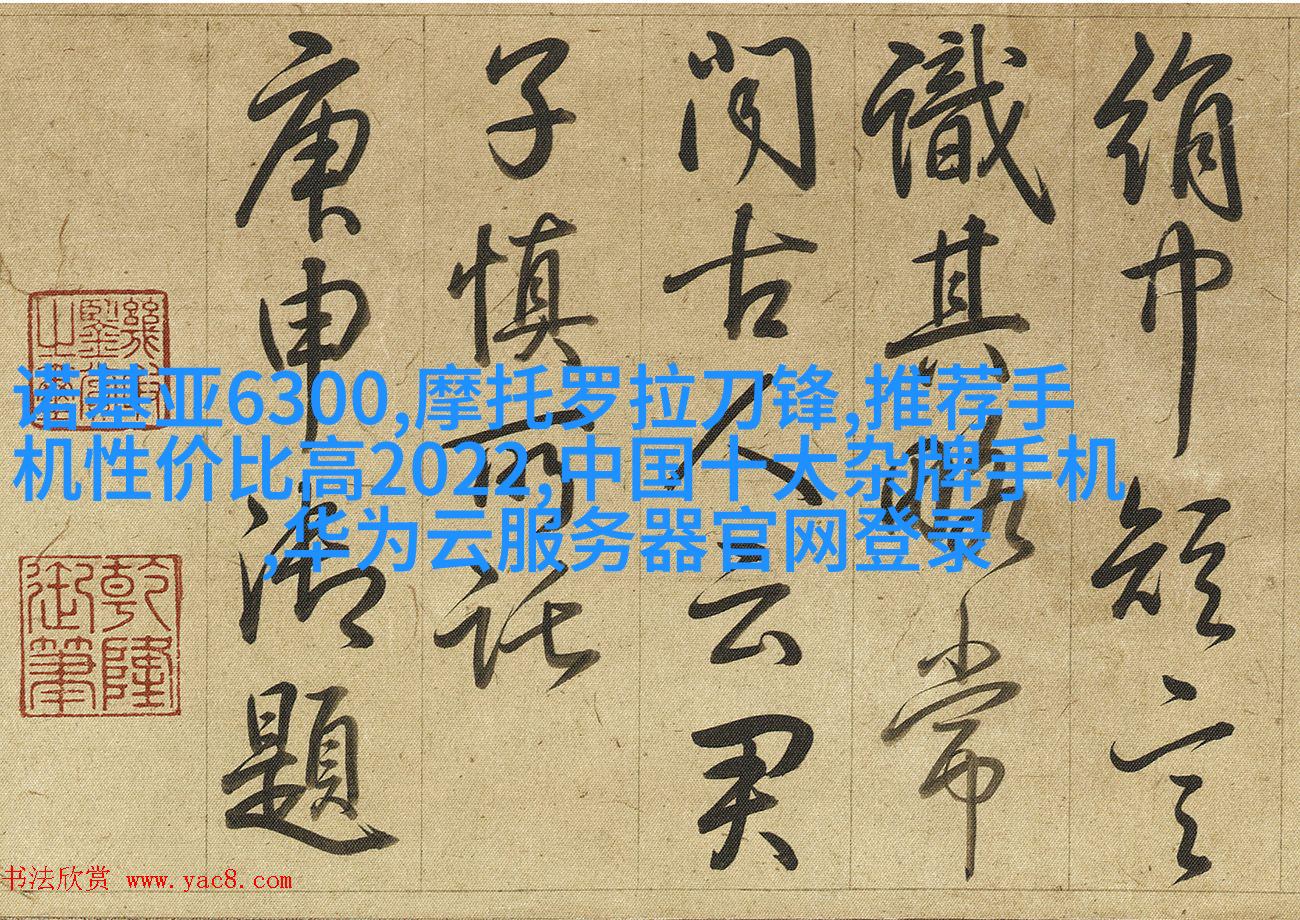 絹中短言
識其常
闻古人云君
子慎所託
庚申御题
乾隆御筆
诺基亚6300,摩托罗拉刀锋,推荐手
机性价比高2022,中国十大杂牌手机
,华为云服务器官网登录
书法欣赏 www.yac8.com